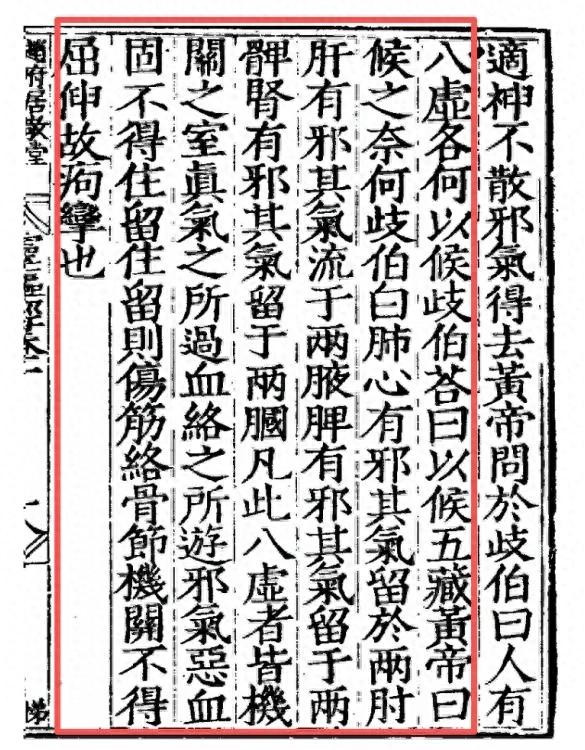 適神不散邪氣得去黃帝問於歧伯曰人有
八虛各何以候歧伯荅曰以候五藏黃帝曰
候之奈何歧伯曰肺心有邪其氣留於兩肘
肝有邪其氣流于兩腋脾有邪其氣留于兩
髀腎有邪其氣留于兩膕凡此八虛者皆機
關之室眞氣之所過血絡之所遊邪氣惡血
固不得住留住留則傷筋絡骨節機關不得
屈伸故痀攣也
趙府居敬堂